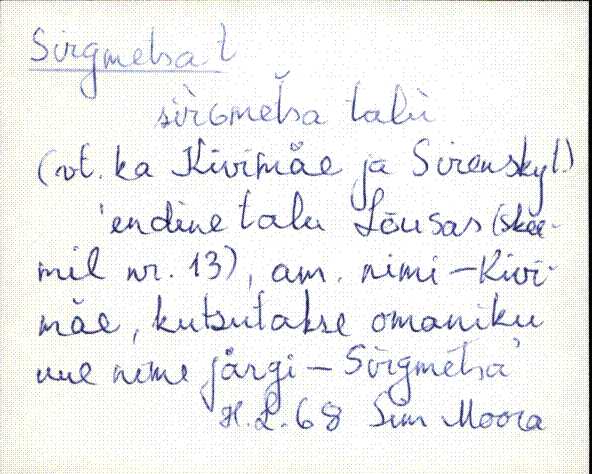 Sirgmetsa t
sìrGmĕtsa talù
(vt. ka Kivimäe ja Sirensky t.)
'endine talu Lõusas (skee-
mil nr. 13), am. nimi – Kivi-
mäe, kutsutakse omaniku
uue nime järgi – Sirgmetsa'
H.L. 68 Sum Moora